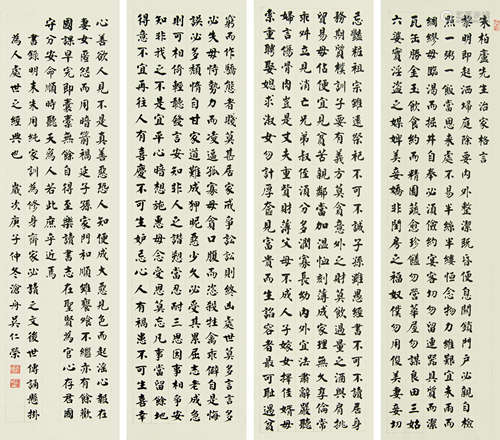 朱柏廬先生治家格言
黎明即起洒掃庭除要內外整潔既昏便息關鎖門戶必親自檢
點一粥一飯當思來處不易半絲半縷恒念物力維艱宜未雨而
綢繆毋臨渴而掘井自奉必須儉約宴客切勿留連器具質而潔
瓦缶勝金玉飲食約而精園蔬愈珍饈勿營華屋勿謀良田三姑
六婆實淫盜之媒婢美妾嬌非閨房之福奴僕勿用俊美妻妾切
忌艷粧祖宗雖遠祭祀不可不誠子孫雖愚經書不可不讀居身
務期質樸訓子要有義方莫貪意外之財莫飲過量之酒與肩挑
貿易毋佔便宜見貧苦親鄰當加溫恤刻薄成家理無久享倫常
乖舛立見消亡兄弟叔侄須分多潤寡長幼內外宜法肅辭嚴聽
婦言乖骨肉豈是丈夫重資財薄父母不成人子嫁女擇佳婿毋
索重聘娶媳求淑女勿計厚奩見富貴而生諂容者最可恥遇貧
窮而作驕態者賤莫甚居家戒爭訟訟則終凶處世莫多言言多
必失毋恃勢力而凌逼孤寡毋貪口腹而恣殺牲禽乖僻自是悔
誤必多頹惰自甘家道難成狎昵惡少久必受其累屈志老成急
則可相倚輕聽發言安知非人之譖愬當忍耐三思因事相爭安
知非我之不是宜平心暗想施惠毋念受恩莫忘凡事當留餘地
得意不宜再往人有喜慶不可生妒忌心人有禍患不可生喜幸
心善欲人見不是真善惡恐人知便是大惡見色而起淫心報在
妻女匿怨而用暗箭禍延子孫家門和順雖饔飧不繼亦有餘歡
國課早完即囊橐無餘自得至樂讀書志在聖賢為官心存君國
守分安命順時聽天為人若此庶乎近焉
書錄明末朱用純家訓為修身齊家必讀之文後世傳誦懸掛
為人處世之經典也 歲次庚子仲冬滄舟吳仁榮